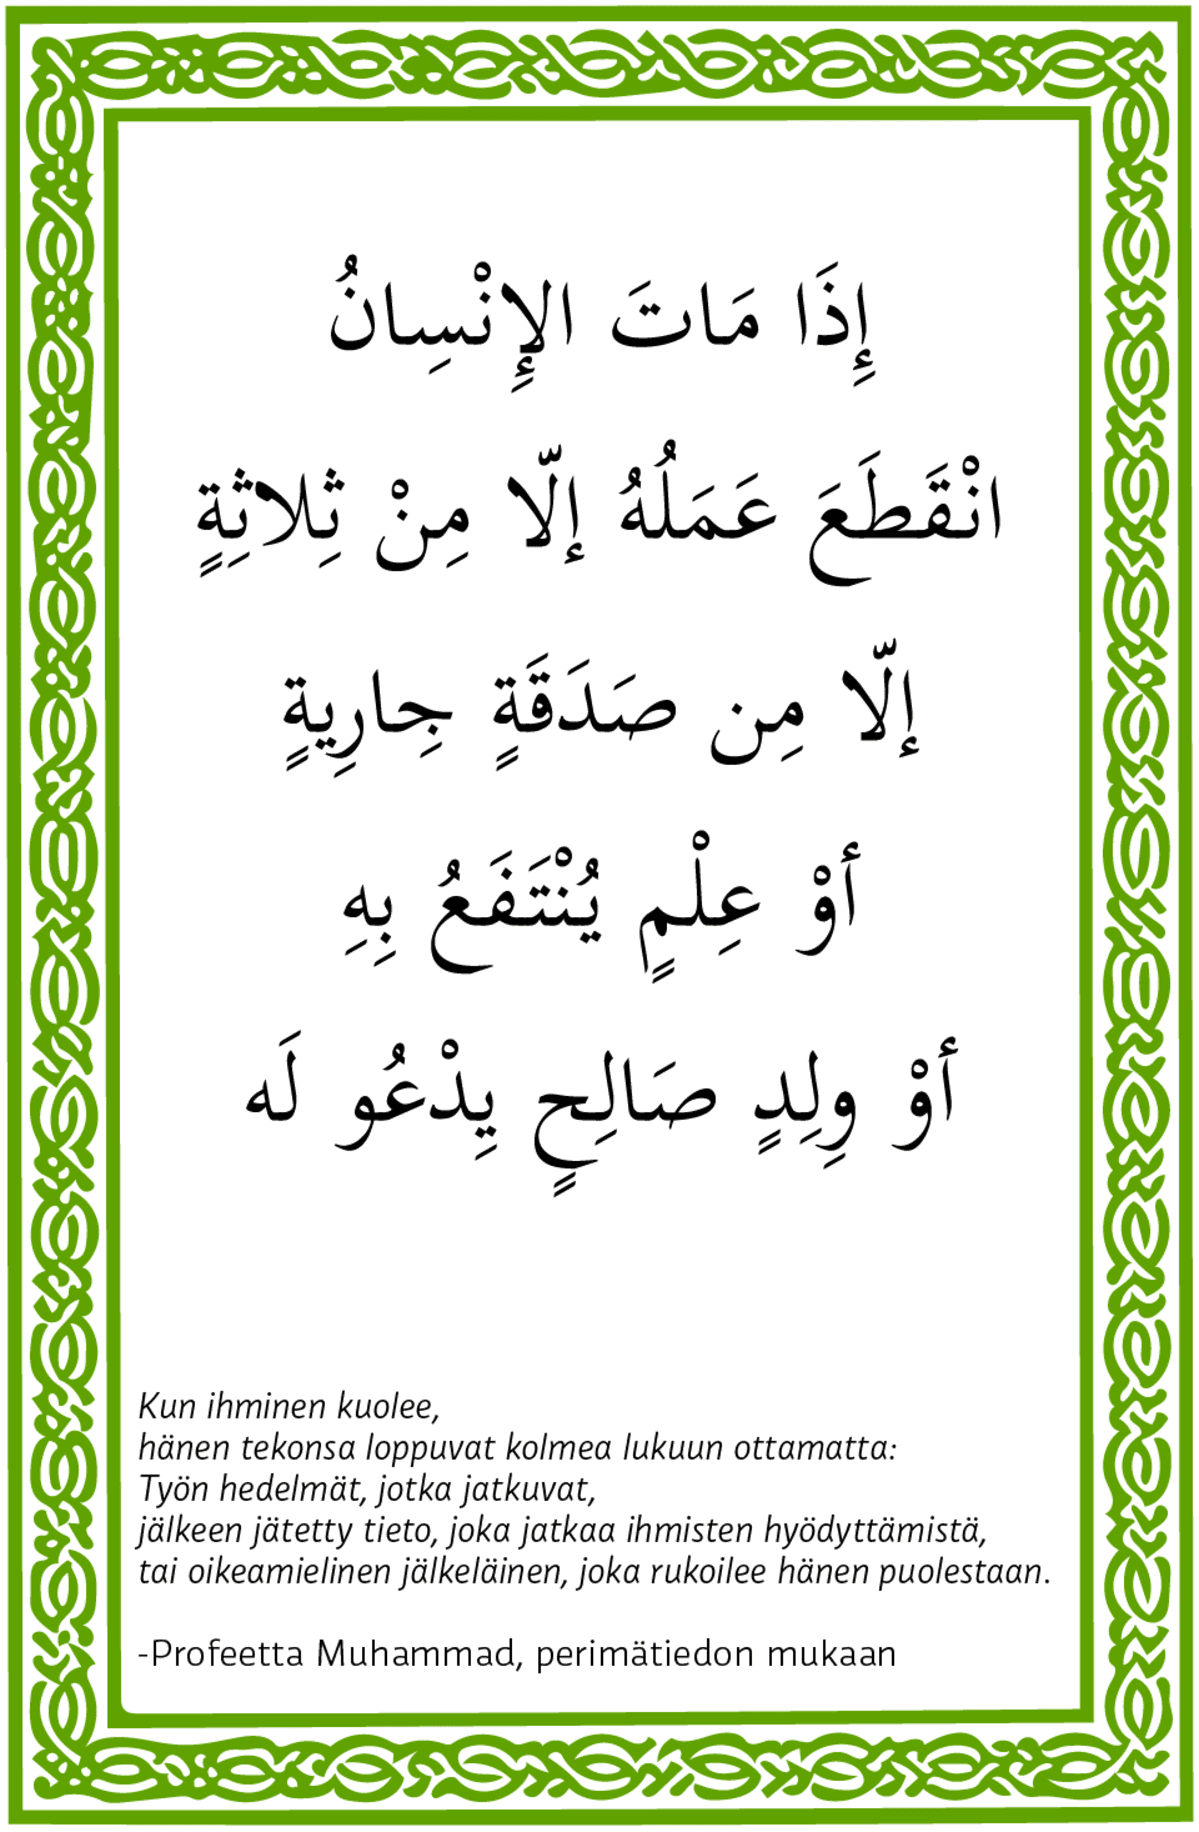 إِذَا مَاتَ الإِنْسِانُ
انْقَطَعَ عَمَلُهُ إلّا مِنْ ثِلاثِةٍ
إلّا مِن صَدَقَةٍ جِارِيةٍ
أوْ عِلْمٍ يُنْتَفَعُ بِهِ
أوْ وِلِدٍ صَالِحٍ يِدْعُو لَه
Kun ihminen kuolee,
hänen tekonsa loppuvat kolmea lukuun ottamatta:
Työn hedelmät, jotka jatkuvat,
jälkeen jätetty tieto, joka jatkaa ihmisten hyödyttämistä,
tai oikeamielinen jälkeläinen, joka rukoilee hänen puolestaan.
-Profeetta Muhammad, perimätiedon mukaan